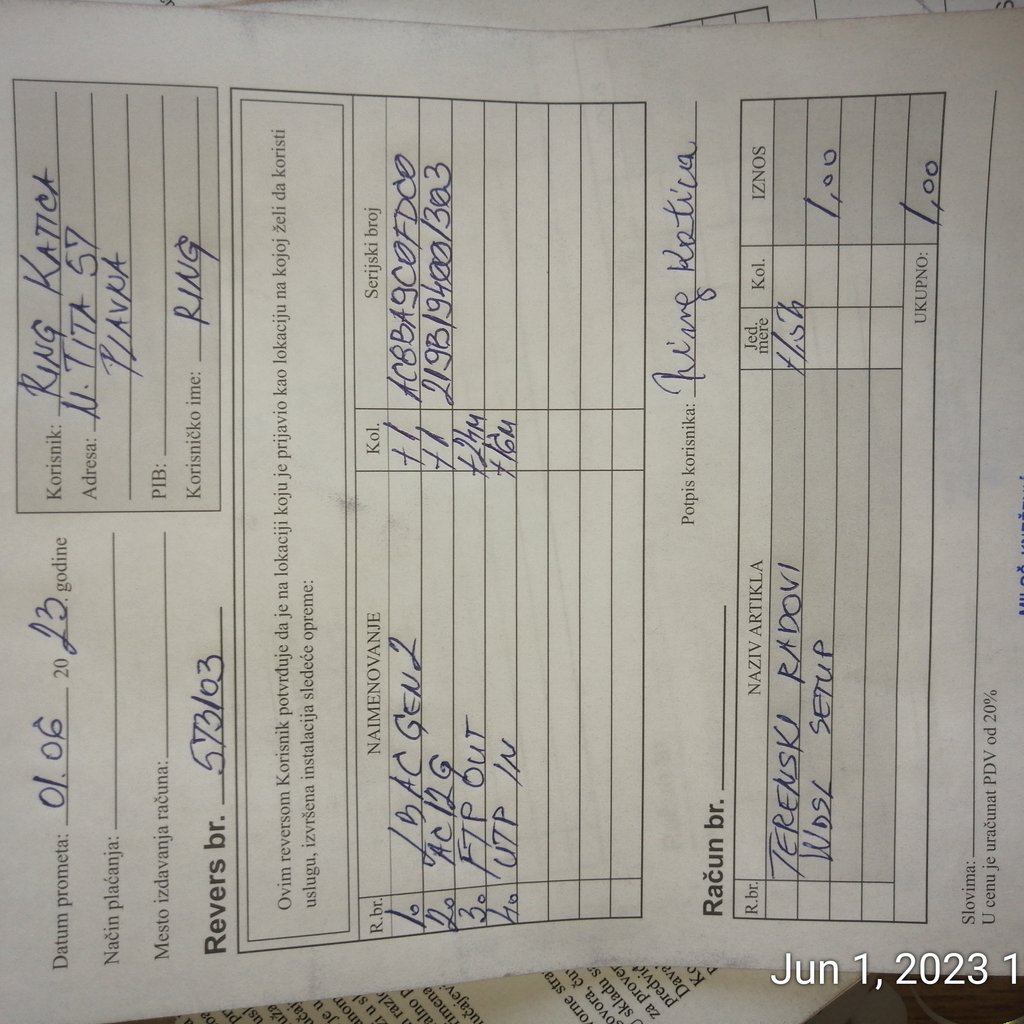 Datum prometa: 01.06 2023. godine
Način plaćanja:
Mesto izdavanja računa:
Korisnik: RING KATICA
Adresa: N. TITA 57
PLAVNA
PIB:
Korisničko ime: RING
Revers br. 573/03
Ovim reversom Korisnik potvrđuje da je na lokaciji koju je prijavio kao lokaciju na kojoj želi da koristi
uslugu, izvršena instalacija sledeće opreme:
R.br. NAIMENOVANJE Kol. Serijski broj
1. LB AC GEN2 +1
2. AC12G +1
3. FTP OUT +24M
4. UTP IN +16M
Potpis korisnika: Ring Katica
Račun br.
R.br. NAZIV ARTIKLA Jed. mere Kol. IZNOS
TERENSKI RADOVI
WDSL SETUP 1,00
UKUPNO: 1,00
Slovima:
U cenu je uračunat PDV od 20%
Jun 1, 2023 1